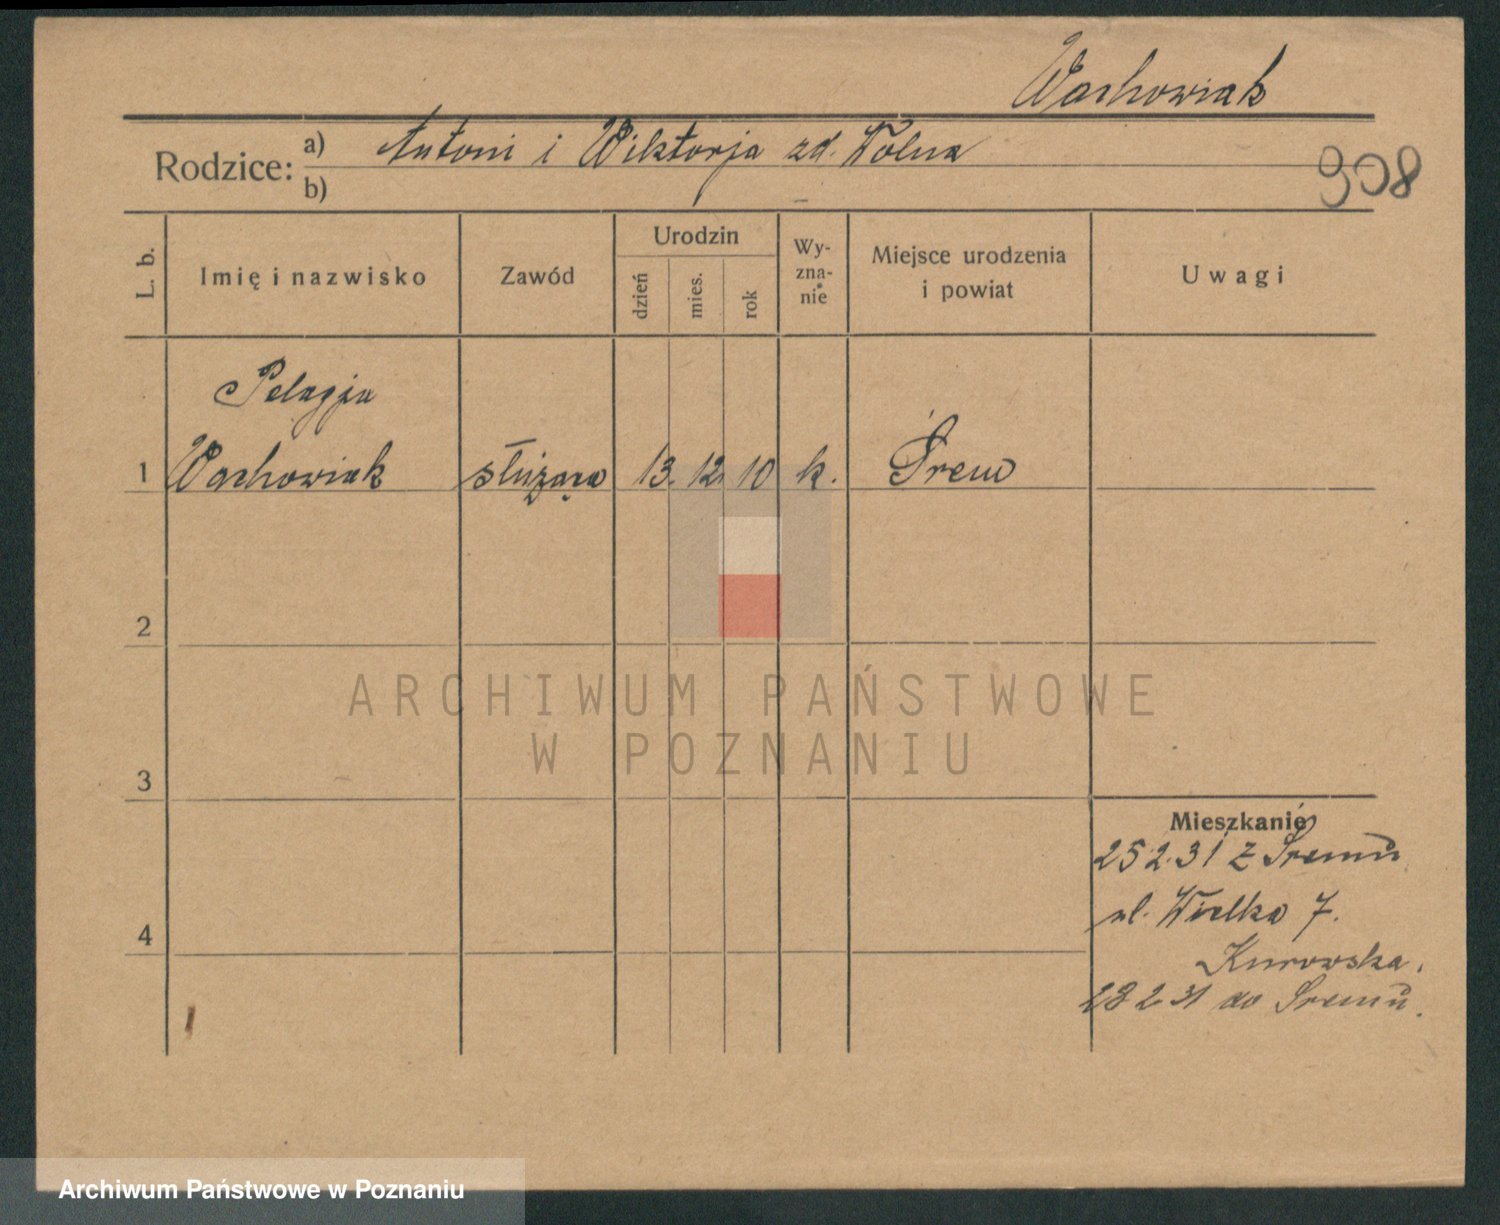 Wachowiak
Rodzice: a) Antoni i Wiktorja zd. Wolna
b)
908
L. b.
Imię i nazwisko
Zawód
Urodzin
dzień
mies.
rok
Wy-
zna-
nie
Miejsce urodzenia
i powiat
Uwagi
Pelagja
1 Wachowiak służąca 13. 12. 10 k. Śrem
2
3
4
Mieszkanie
25.2.31 z Śremu
ul. Wielka 7.
Kurowska.
28 2 31 do Śremu.
ARCHIWUM PAŃSTWOWE
W POZNANIU
Archiwum Państwowe w Poznaniu